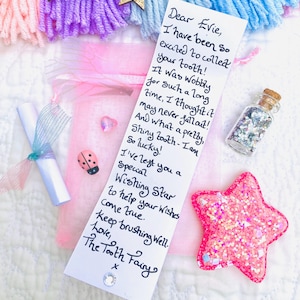 Dear Evie,
I have been so
excited to collect
your tooth!
It was wobbly
for such a long
time, I thought it
may never fall out!
And what a pretty,
shiny tooth. I am
so lucky!
I've left you a
special
Wishing Star
to help your wishes
come true.
Keep brushing well.
Love,
The Tooth Fairy
x